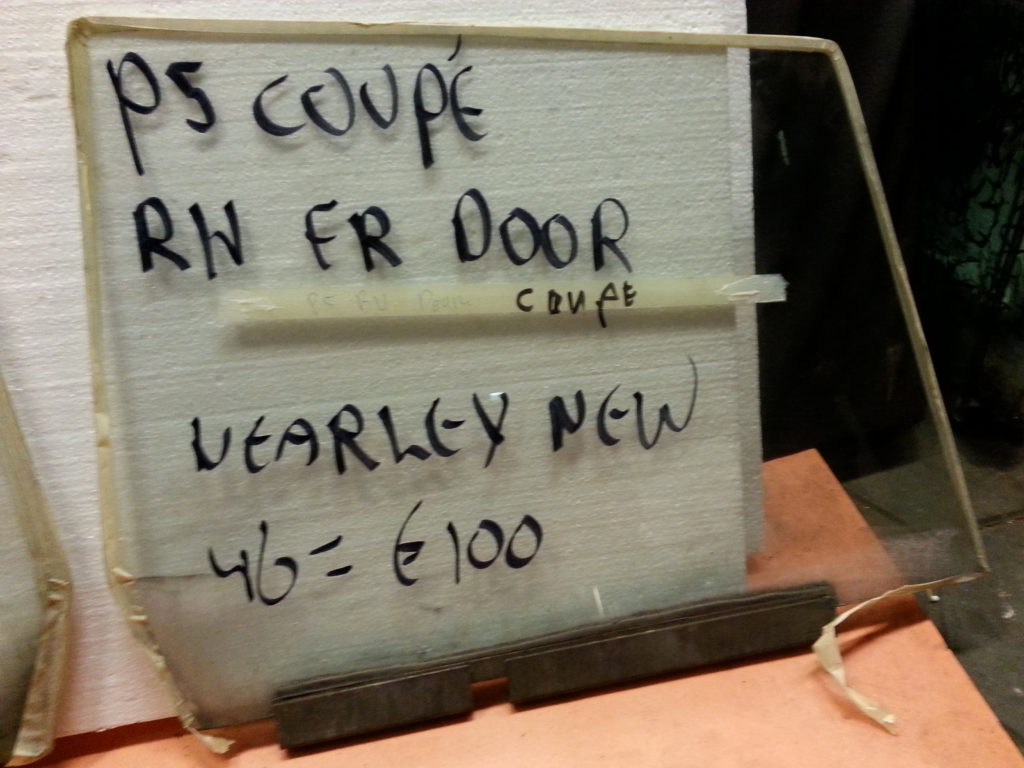 P5 COUPÉ
RH FR DOOR
COUPE
NEARLEY NEW
46 = €100